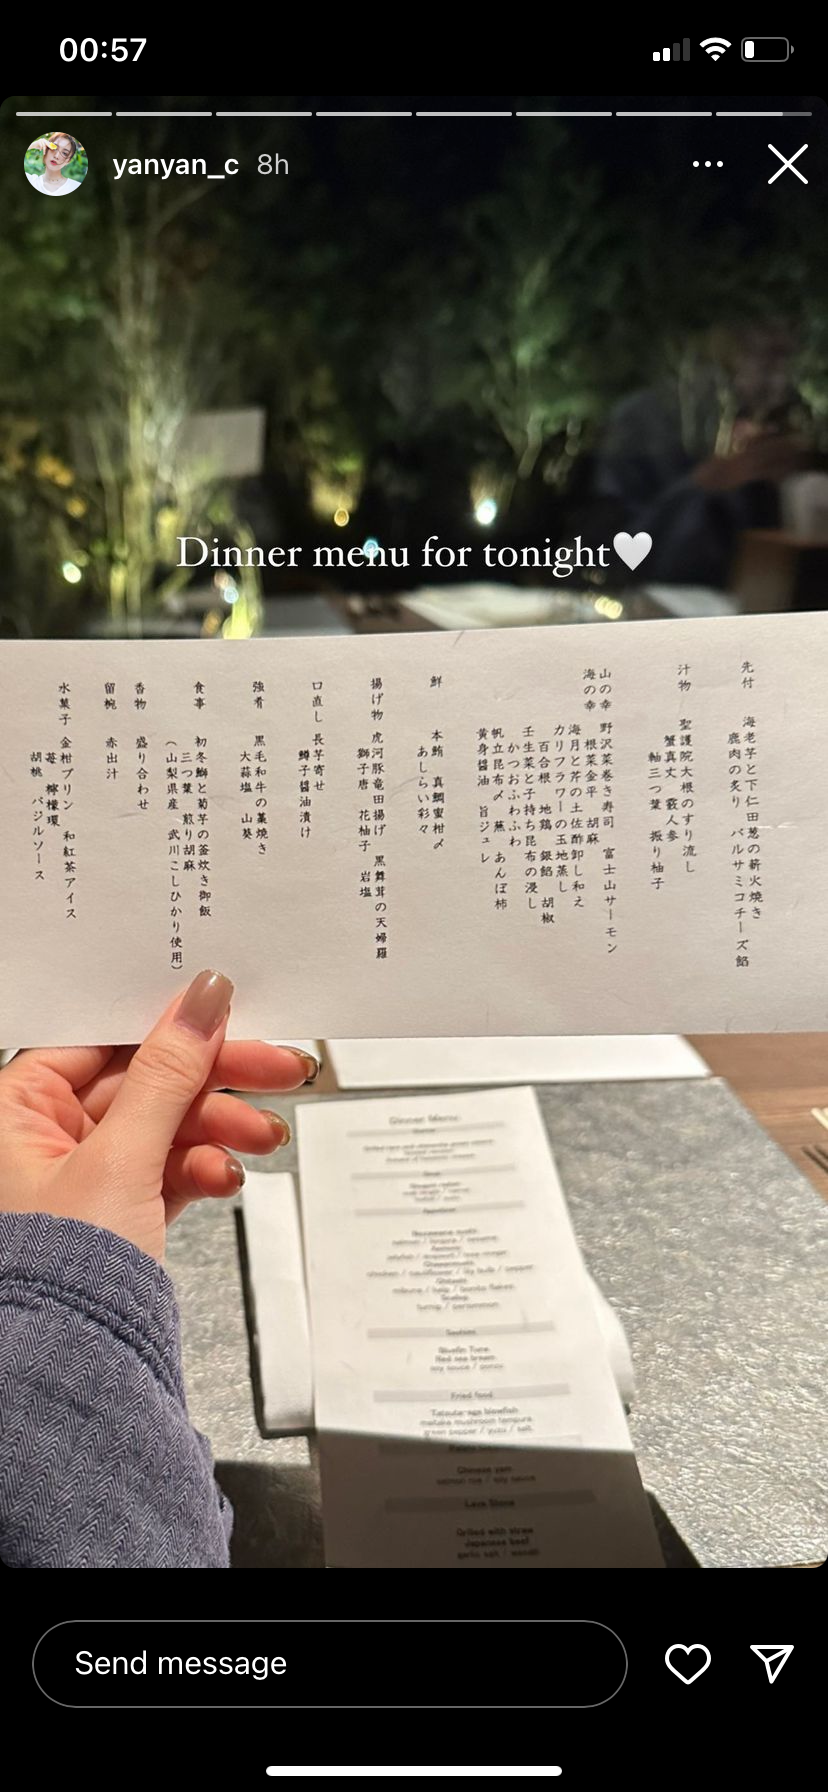 00:57
yanyan_c 8h
Dinner menu for tonight🤍
先付
海老芋と下仁田葱の薪火焼き
鹿肉の炙り バルサミコチーズ餡
汁物
聖護院大根のすり流し
蟹真丈 霰人参
軸三つ葉 振り柚子
山の幸
海の幸
野沢菜巻き寿司 富士山サーモン
根菜金平 胡麻
海月と芹の土佐酢卸し和え
カリフラワーの玉地蒸し
百合根 地鶏 銀餡 胡椒
壬生菜と子持ち昆布の浸し
かつおふわふわ
帆立昆布〆 蕪 あんぽ柿
黄身醤油 旨ジュレ
鮮
本鮪 真鯛蜜柑〆
あしらい彩々
揚げ物
虎河豚竜田揚げ 黒舞茸の天婦羅
獅子唐 花柚子 岩塩
口直し
長芋寄せ
鱒子醤油漬け
強肴
黒毛和牛の藁焼き
大蒜塩 山葵
食事
初冬鰤と菊芋の釜炊き御飯
三つ葉 煎り胡麻
(山梨県産 武川こしひかり使用)
香物
盛り合わせ
留椀
赤出汁
水菓子
金柑プリン 和紅茶アイス
苺 檸檬環
胡桃 バジルソース
Dinner Menu
Seafood
Bluefin Tuna
Red sea bream
soy sauce / ponzu
Fried food
Tatsuta-age blowfish
maitake mushroom tempura
green pepper / yuzu / salt
Chinese yam
salmon roe / soy sauce
Lava Stone
Grilled with straw
Japanese beef
garlic salt / wasabi
Send message